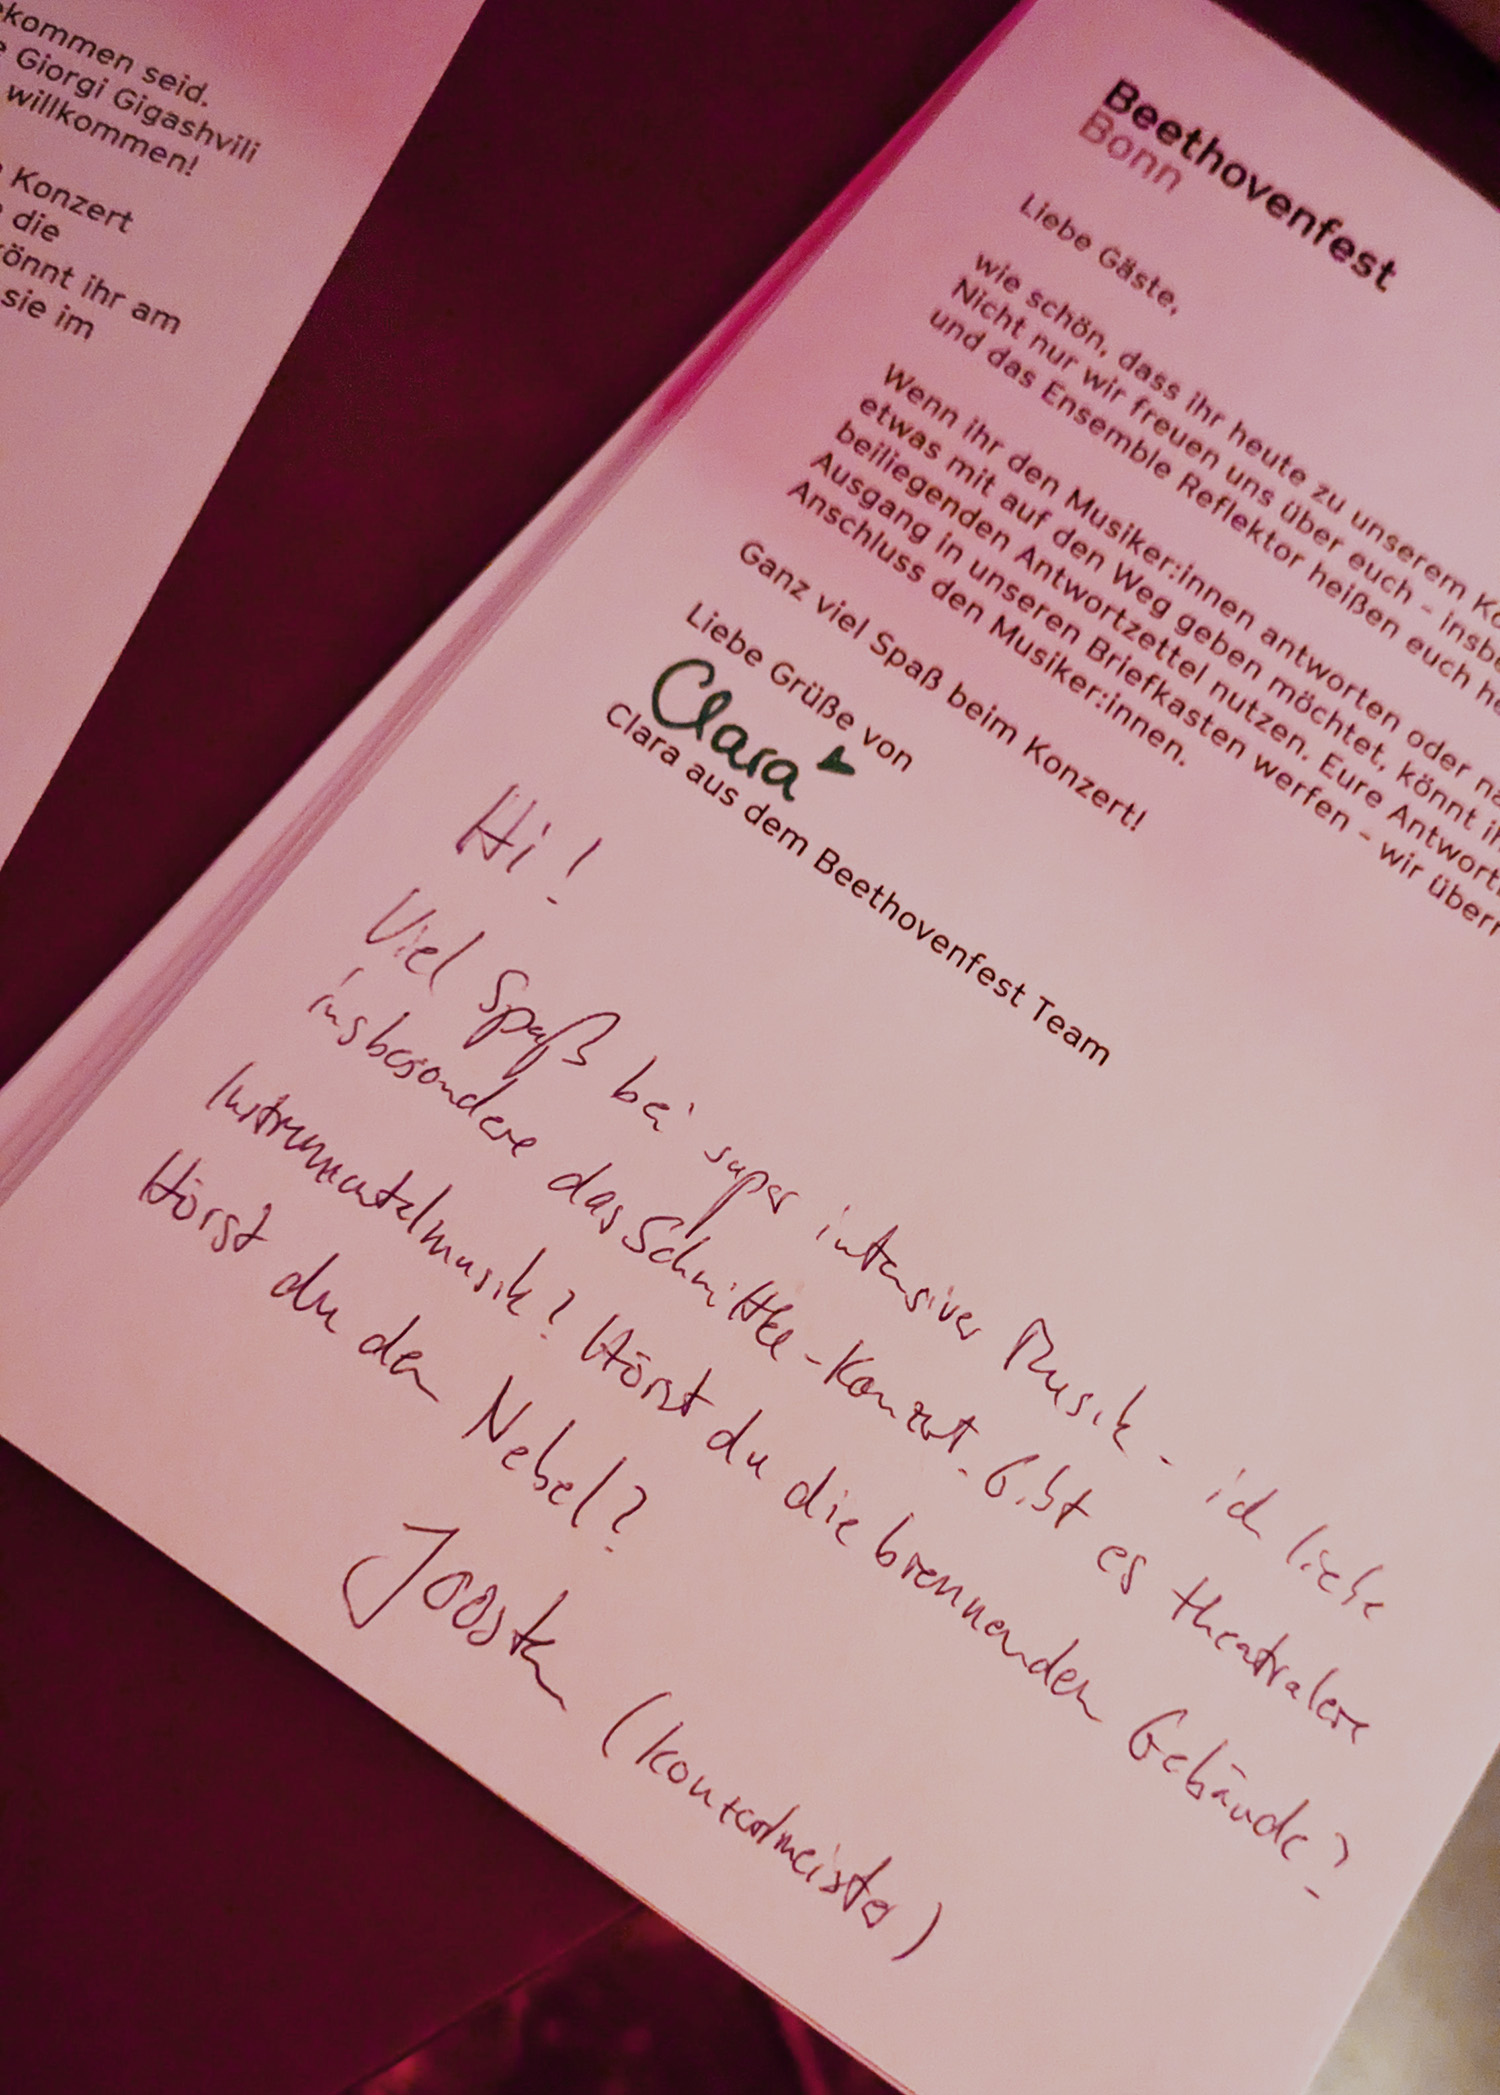 kommen seid.
Giorgi Gigashvili
willkommen!
Konzert
die
könnt ihr am
sie im
Beethovenfest
Bonn
Liebe Gäste,
wie schön, dass ihr heute zu unserem Ko
Nicht nur wir freuen uns über euch – insbe
und das Ensemble Reflektor heißen euch he
Wenn ihr den Musiker:innen antworten oder
etwas mit auf den Weg geben möchtet, könnt
beiliegenden Antwortzettel nutzen. Eure Antwort
Ausgang in unseren Briefkasten werfen – wir über
Anschluss den Musiker:innen.
Ganz viel Spaß beim Konzert!
Liebe Grüße von
Clara
Clara aus dem Beethovenfest Team
Hi!
Viel Spaß bei super intensiver Musik – ich liebe
insbesondere das Schnittke-Konzert. Gibt es theatralere
Instrumentalmusik? Hörst du die brennenden Gebäude?
Hörst du den Nebel?
Joosten (Konzertmeister)